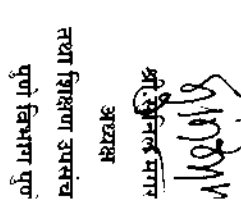 श्री. सुनिल मगर
अध्यक्ष
तथा शिक्षण उपसंच
पुणे विभाग पुणे